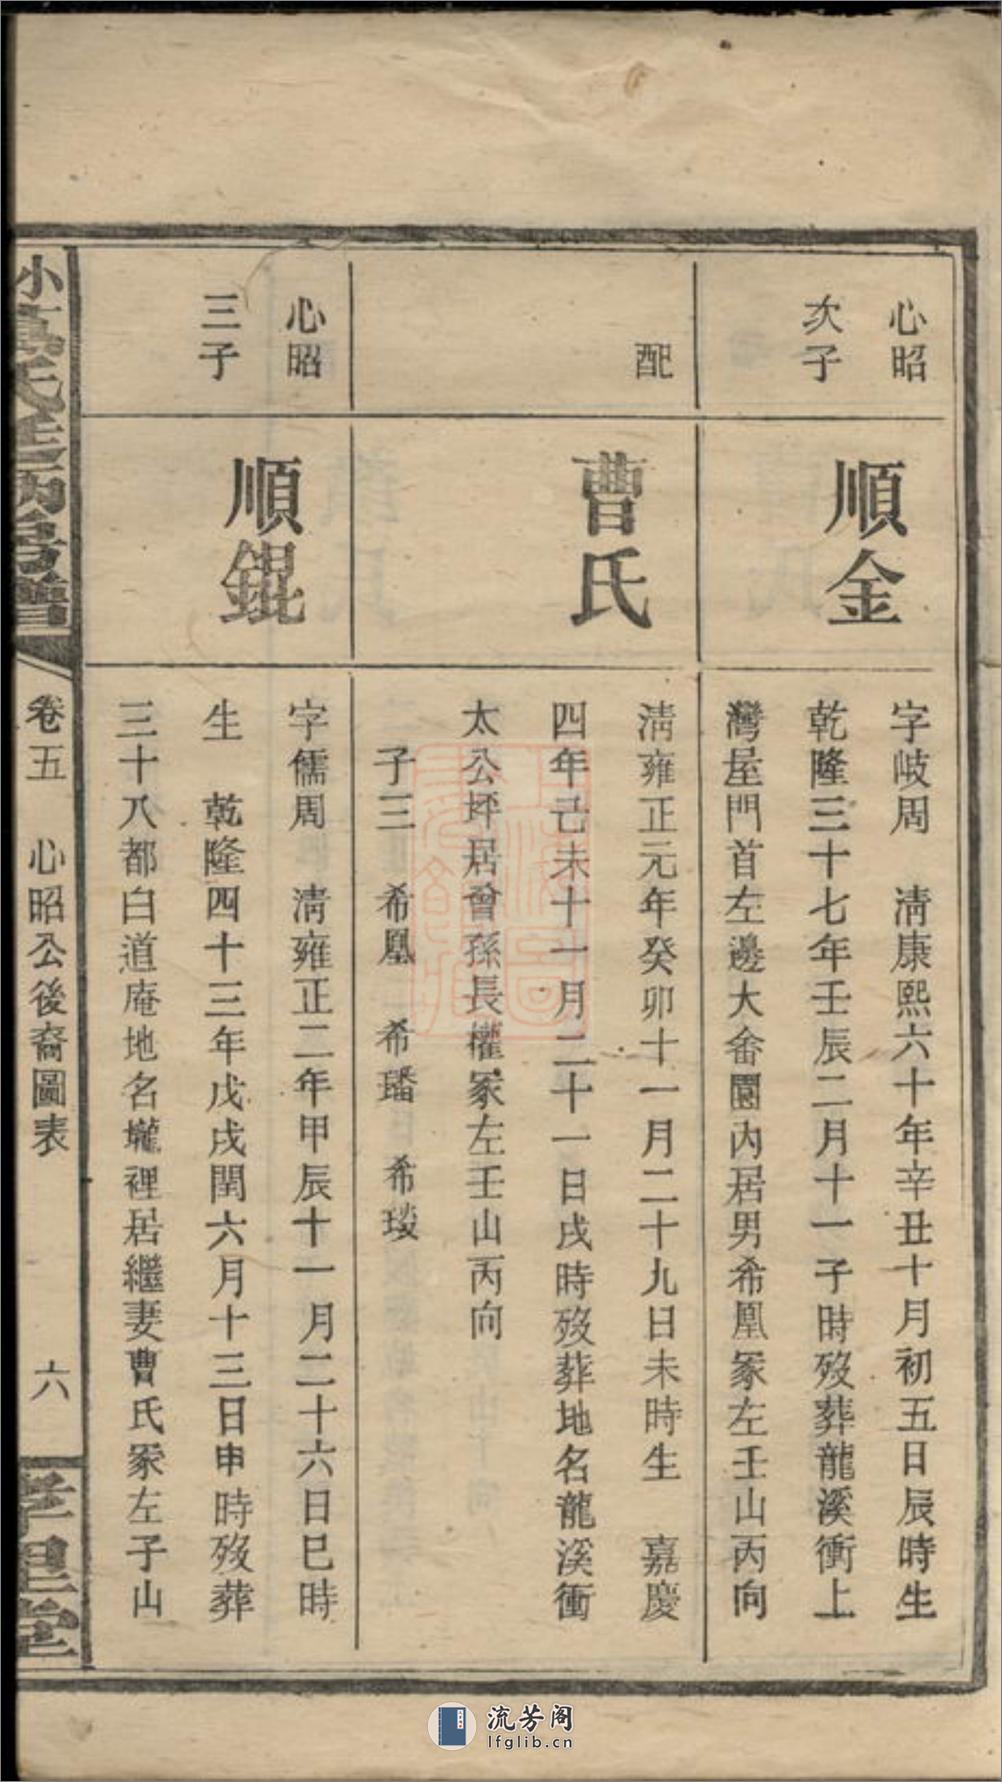 心昭
次子
順金
字岐周　淸康熙六十年辛丑十月初五日辰時生
乾隆三十七年壬辰二月十一子時歿葬龍溪衝上
灣屋門首左邊大畲園內居男希凰冢左壬山丙向
配
曹氏
淸雍正元年癸卯十一月二十九日未時生　嘉慶
四年己未十一月二十一日戌時歿葬地名龍溪衝
太公坪居曾孫長權冢左壬山丙向
子三　希凰　希璠　希琰
心昭
三子
順錕
字儒周　淸雍正二年甲辰十一月二十六日巳時
生　乾隆四十三年戊戌閏六月十三日申時歿葬
三十八都白道庵地名壠裡居繼妻曹氏冢左子山
卷五　心昭公後裔圖表　六
流芳阁
lfglib.cn